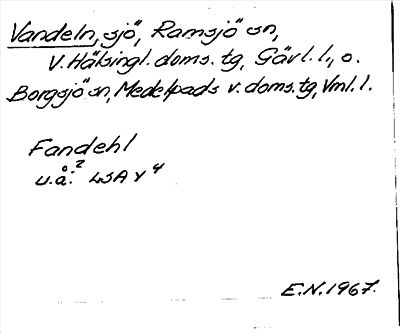 Vandeln, sjö, Ramsjö sn,
V. Hälsingl. doms. tg, Gävl. l., o.
Borgsjö sn, Medelpads v. doms. tg, Vml. l.
Fandehl
u.å.² LSA Y⁴
E.N. 1967.